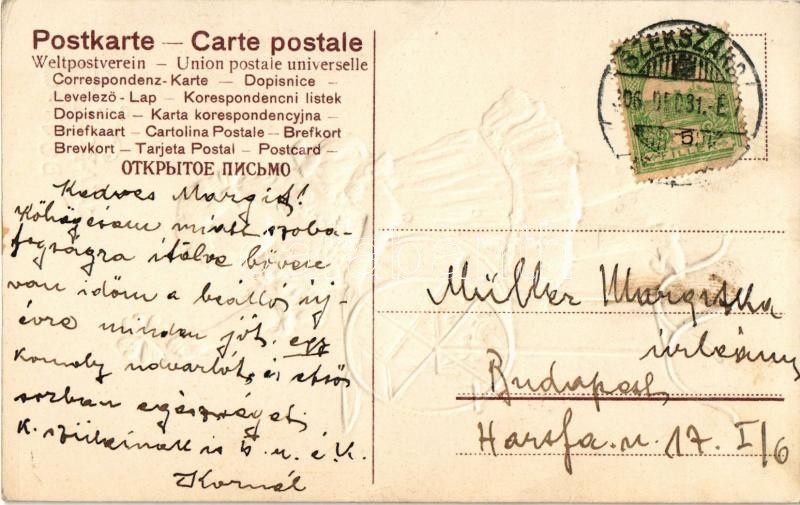 Postkarte — Carte postale
Weltpostverein — Union postale universelle
Correspondenz-Karte — Dopisnice -
Levelező - Lap — Korespondencni listek
Dopisnica — Karta korespondencyjna —
Briefkaart — Cartolina Postale — Brefkort
Brevkort — Tarjeta Postal — Postcard —
ОТКРЫТОЕ ПИСЬМО
SZEKSZÁRD
906 DEC 31
5
FILLÉR
Kedves Margit!
Köhögésem miatt szoba-
fogságra itélve bőven
van időm a beálló új-
évre minden jót, egy
komoly udvarlót, és első
sorban egészséget
k. szüleinek is b. u. é. k.
Kornél
Müller Margitka
úrleány
Budapest
Harsfa u. 17. I/6